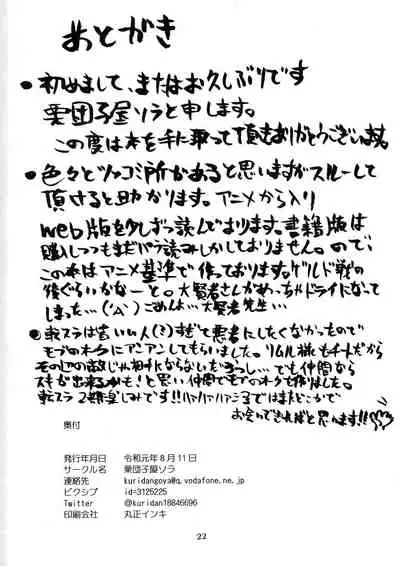 あとがき
●初めまして、またはお久しぶりです
栗団子屋ソラと申します。
この度は本を手に取って頂きありがとうございます。
●色々とツッコミ所があると思いますがスルーして
頂けると助かります。アニメから入り
web版を少しずつ読んでおります。書籍版は
購入しつつもまだパラ読みしかしておりません。ので、
この本はアニメ基準で作っております。ギルド戦の
後ぐらいかなーと。大賢者さんがめっちゃドライになって
しまった…('A`)ごめんよ…大賢者先生…
●転スラは皆いい人(?)すぎて悪者にしたくなかったもので
モブのオークにアンアンしてもらいました。リムル様もチートだから
そのへの敵じゃ相手にならないだろうし…でも仲間なら
スキが出来るかも!と思い仲間でモブのオークを作りました。
転スラ2期楽しみです!!ハァハァハァ ではまたどこかで
お会いできればと思います!!
奥付
発行年月日 令和元年8月11日
サークル名 栗団子屋ソラ
連絡先 kuridangoya@q.vodafone.ne.jp
ピクシブ id=3125225
Twitter @kuridan18846696
印刷会社 丸正インキ
22